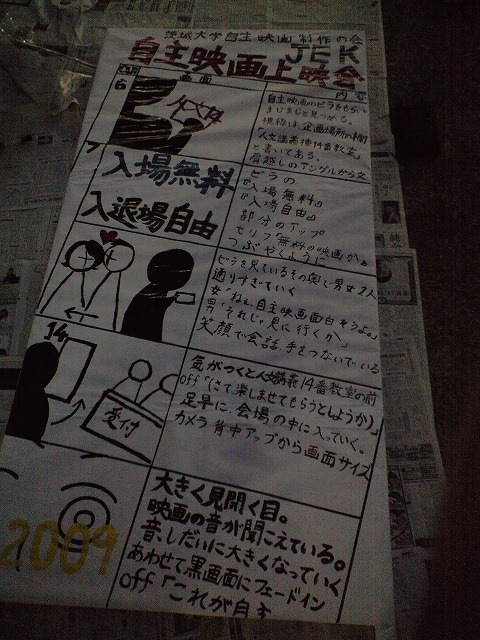 茨城大学自主映画制作の会
JEK
自主映画上映会
画面
内容
6
人文14
自主映画のビラをもらい
まじまじと見つめる。
視線は、企画場所の欄
「人文講義棟14番教室」
と書いてある。
肩越しのアングルから文
7
入場無料
入退場自由
ビラの
『入場無料』
『入場自由』
部分のアップ
セリフ「無料の映画かぁ
つぶやくように
ビラを見ているその奥で男女2人
通りすぎていく
女「ねぇ、自主映画面白そうよ。」
男「それじゃ見に行くか」
笑顔で会話、手をつないでいる
14
受付
気がつくと人文講義14番教室の前
off「(さて楽しませてもらうとしようか)」
足早に、会場の中に入っていく。
カメラ 背中アップから画面サイズ
2009
大きく見開く目。
映画の音が聞こえている。
音、しだいに大きくなっていく
あわせて黒画面にフェードイン
off「これが自主